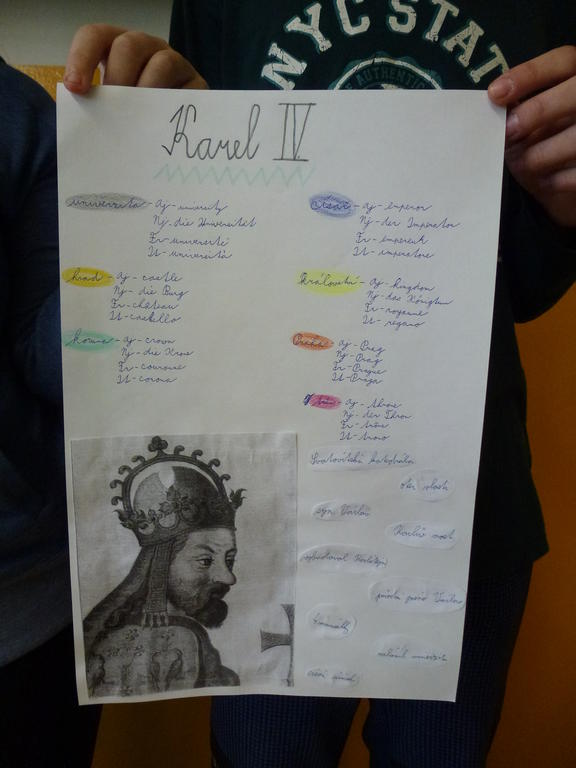 NYC STAT
AUTHENTIC
Karel IV
univerzita - Aj - university
Nj - die Universität
Fr - université
It - università
hrad - Aj - castle
Nj - die Burg
Fr - château
It - castello
koruna - Aj - crown
Nj - die Krone
Fr - couronne
It - corona
císař - Aj - emperor
Nj - der Imperator
Fr - empereur
It - imperatore
království - Aj - kingdom
Nj - das Königtum
Fr - royaume
It - regno
Praha - Aj - Prag
Nj - Prag
Fr - Prague
It - Praga
trůn - Aj - throne
Nj - der Thron
Fr - trône
It - trono
Svatovítská katedrála
otec vlasti
syn
Karlův most
vybudoval Karlštejn